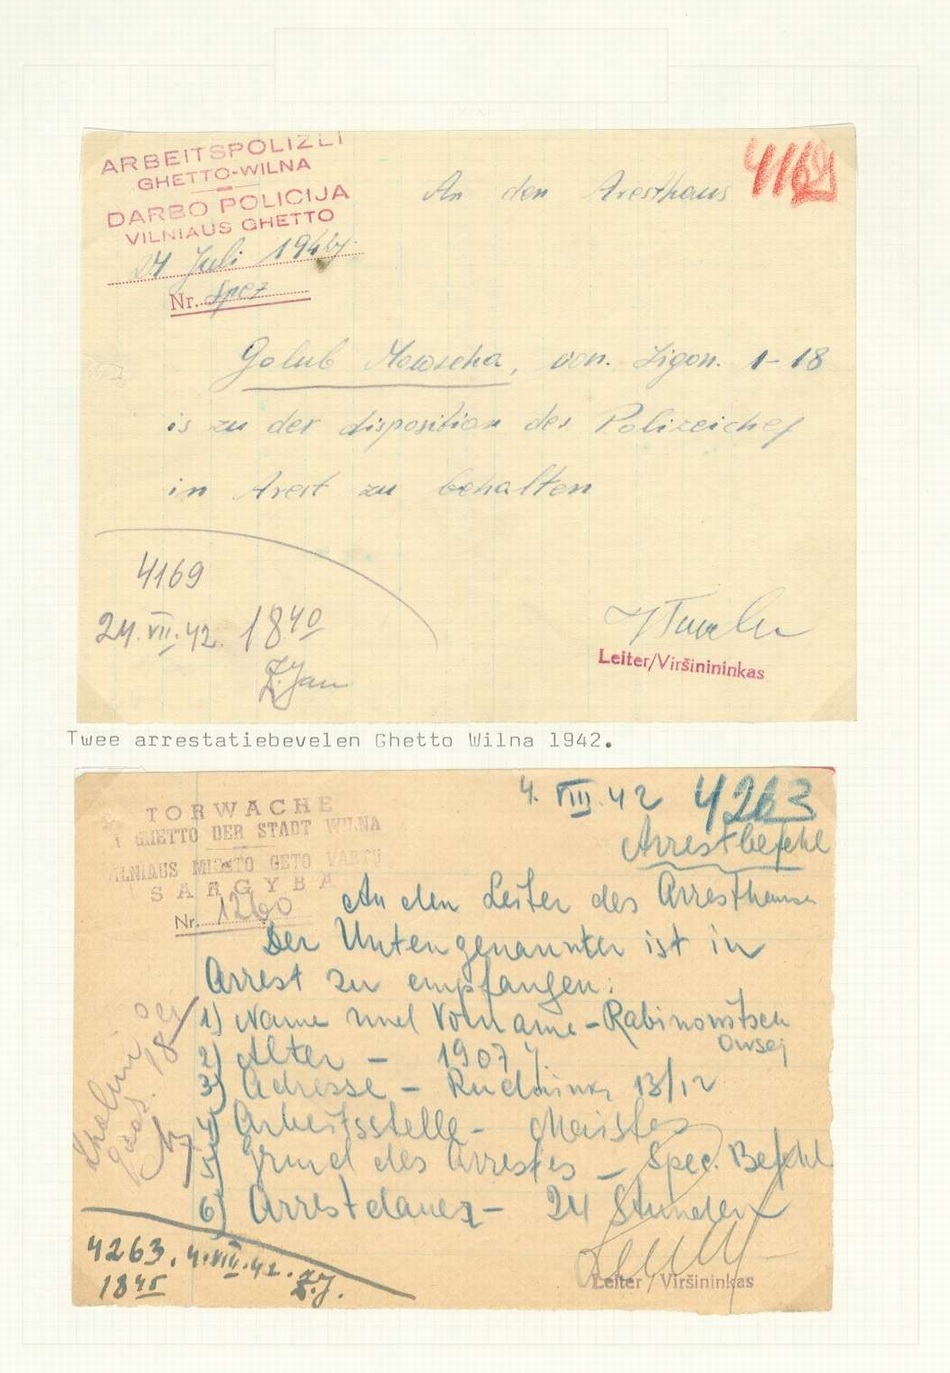 ARBEITSPOLIZEI
GHETTO-WILNA
DARBO POLICIJA
VILNIAUS GHETTO
4169
An den Aresthaus
24 Juli 194
Nr. Spez
Golub Mowscha, von. Ligon. 1-18
is zu der disposition des Polizeichef
in Arest zu behalten
4169
24.VII.42. 18 40
Z. Jan
Leiter/Viršinininkas
Twee arrestatiebevelen Ghetto Wilna 1942.
4. VIII. 42 4263
TORWACHE
GHETTO DER STADT WILNA
VILNIAUS MIESTO GETO VARTŲ
SARGYBA
Nr. 1260
Arrestbefehl
An den Leiter des Arresthauses
Der Untengenannter ist in
Arrest zu empfangen:
1) Name und Vorname - Rabinowitsch
Owsej
2) Alter - 1907
3) Adresse - Rudninku 13/12
4) Arbeitsstelle - Maistas
5) Grund des Arrestes - Spec. Befehl
6) Arrestdauer - 24 Stunden
4263. 4.VIII.42. Z.J.
18 45
Leiter / Viršininkas